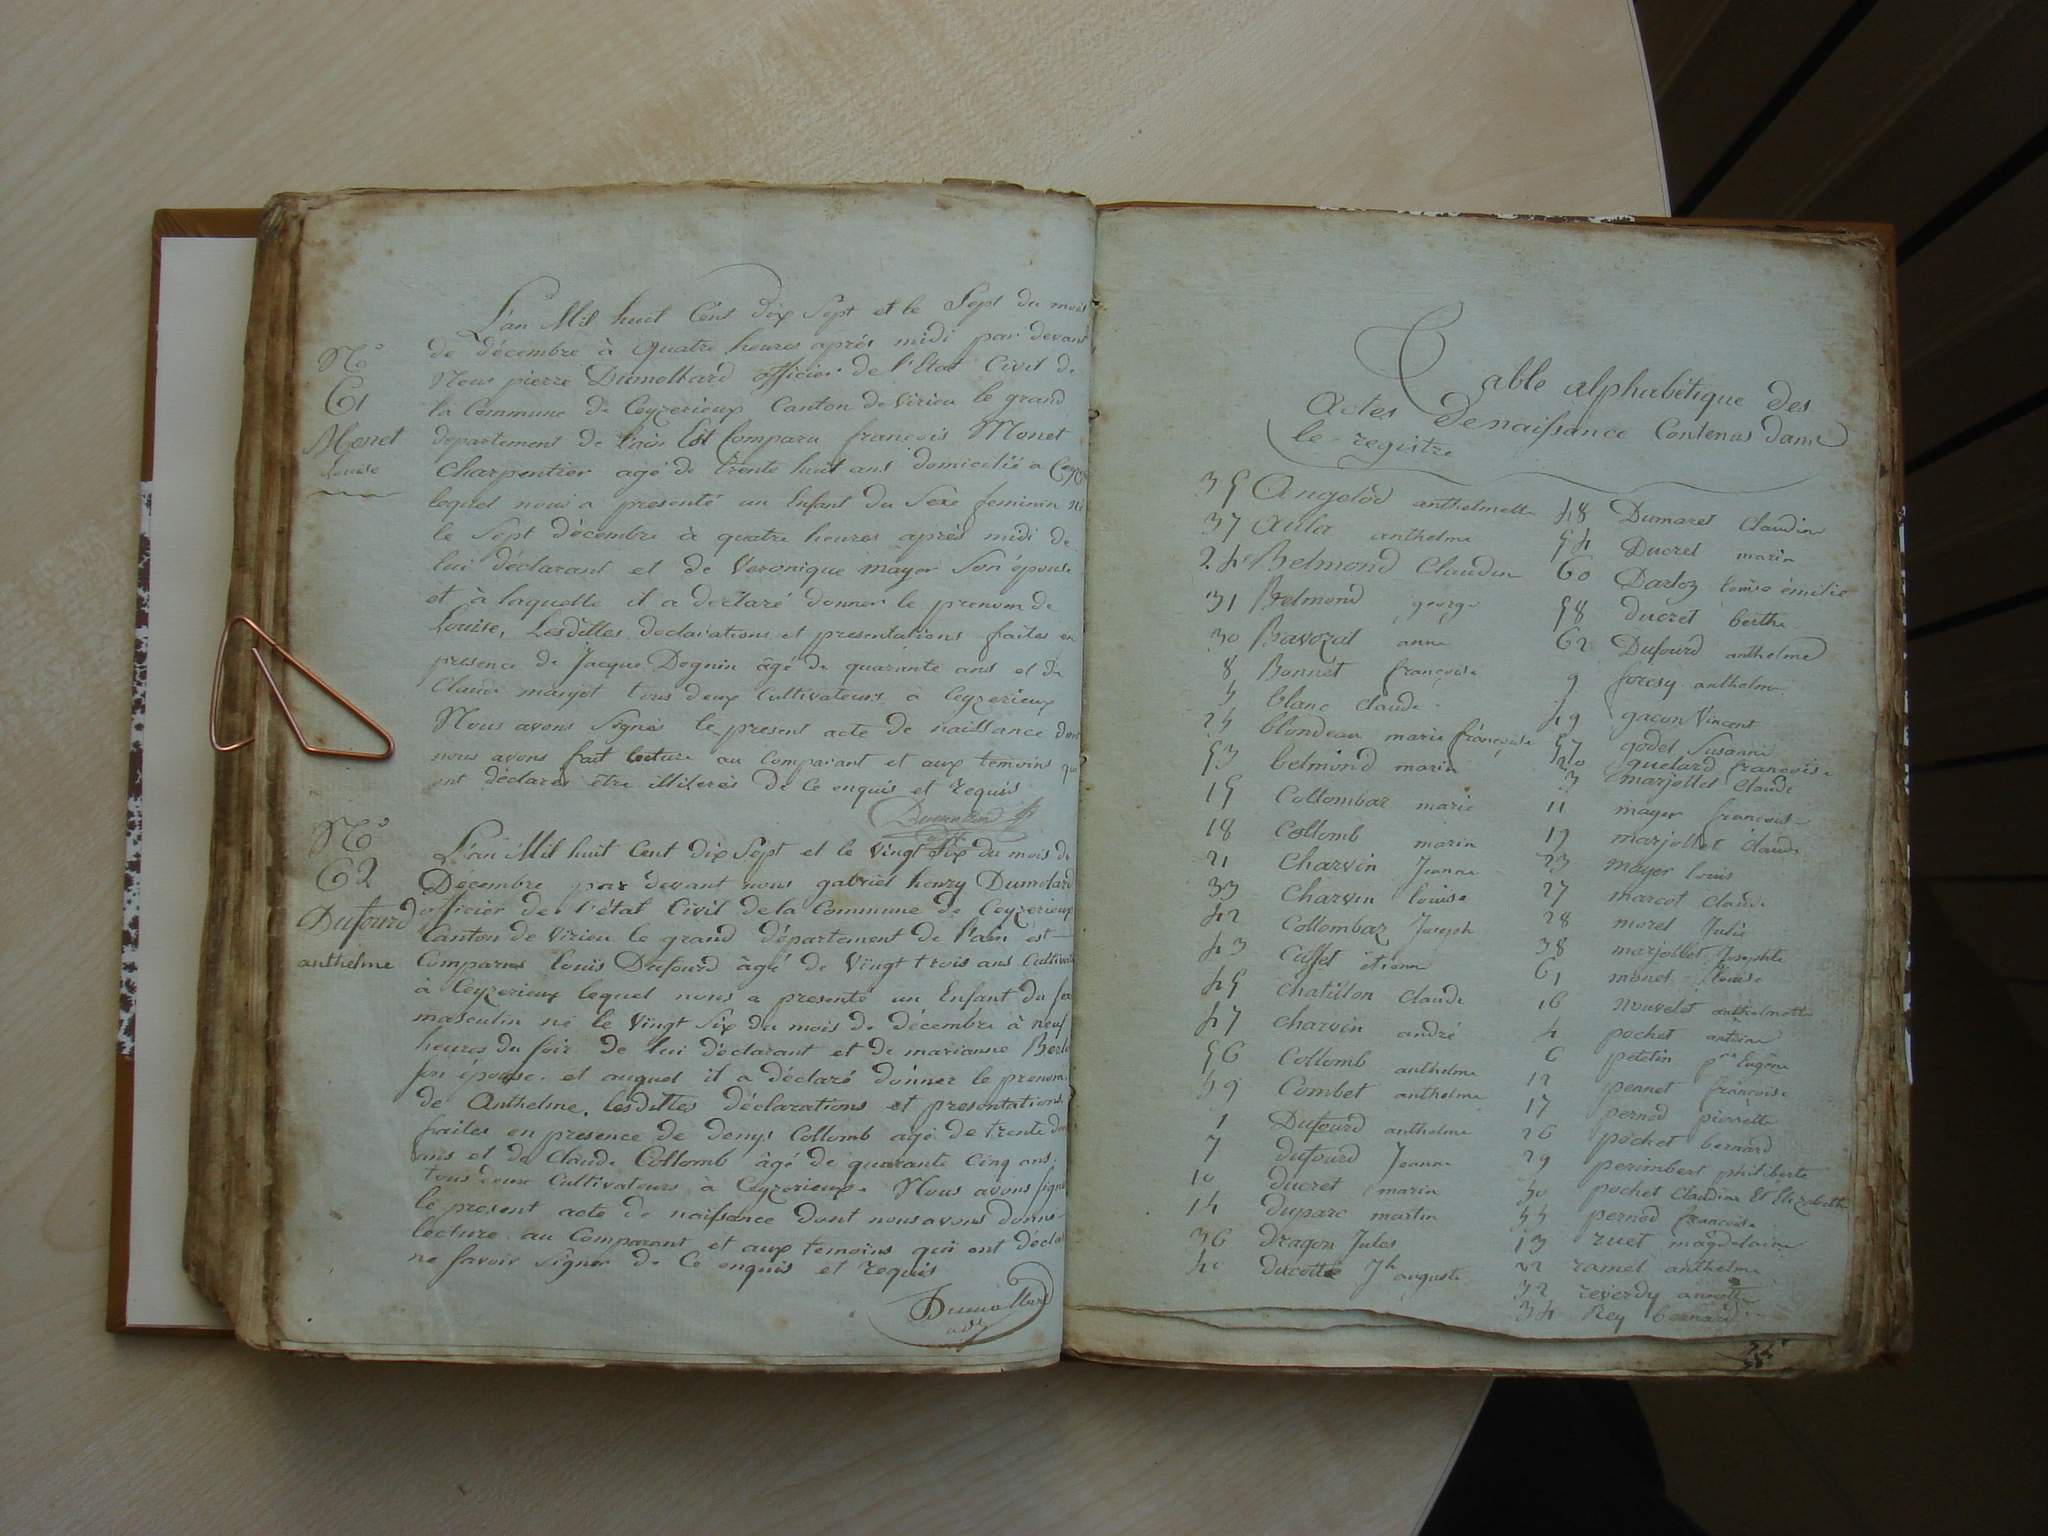 L'an Mil huit Cens dix Sept et le Sept du mois
de décembre à quatre heures après midi par devant
Nous pierre Dumollard officier de l'Etat Civil de
la Commune de Ceyzerieux Canton de Virieu le grand
département de l'ain Est Comparu françois Monet
Charpentier agé de trente huit ans domicilié a
lequel nous a presenté un Enfant du Sexe feminin né
le Sept décembre à quatre heures après midi de
lui déclarant et de Veronique mayer Son épouse
et à laquelle il a déclaré donner le prenom de
Louise, Lesdittes declarations et presentations faites en
presence de Jacque Dognin âgé de quarante ans et de
Claude marjot tous deux Cultivateurs à Ceyzerieux
Nous avons Signés le present acte de naissance dont
nous avons fait lecture au Comparant et aux temoins qui
ont déclarés être illiterés de Ce enquis et requis
N°
61
Monet
Louise
N°
62
Dufourd
anthelme
L'an Mil huit Cent Dix Sept et le vingt Six du mois de
Décembre par devant nous gabriel henry Dumolard
officier de l'état Civil de la Commune de Ceyzerieux
Canton de Virieu le grand département de l'ain est
Comparus louis Dufourd âgé de Vingt trois ans Cultivat
à Ceyzerieux lequel nous a presenté un Enfant du sex
masculin né le Vingt Six du mois de décembre à neuf
heures du soir de lui déclarant et de marianne
son épouse. et auquel il a déclaré donner le prenom
de Anthelme. lesdittes déclarations et presentations
faites en presence de denys Collomb agé de trente
ans et de Claude Collomb âgé de quarante Cinq ans.
tous deux Cultivateurs à Ceyzerieux. Nous avons signé
le present acte de naissance dont nous avons donné
lecture au Comparant et aux temoins qui ont déclar
ne savoir signer de Ce enquis et requis
Dumollard
adjt
Table alphabétique des
Actes de naissance Contenus dans
le registre
35 Angelod anthelmette
37 Aula anthelme
24 Belmond Claudine
31 Belmond george
30 Bavozat anne
8 Bonnet françoise
5 blanc claude
25 blondeau marie françoise
53 belmond marin
15 Collombaz marie
18 Collomb marin
21 Charvin Jeanne
33 Charvin louise
42 Collombaz Joseph
43 Cusset étienne
45 chatillon claude
47 charvin andré
56 Collomb anthelme
59 Combet anthelme
1 Dufourd anthelme
7 dufourd Jeanne
10 ducret marin
14 duparc martin
36 dragon Jules
40 ducotte Jh auguste
48 Dumaret Claudine
54 Ducret marin
60 Darloz louise émilie
58 ducret berthe
62 Dufourd anthelme
9 foresy anthelme
49 gacon Vincent
57 godet Susanne
20 quelard françoise
3 marjollet claude
11 mayer françois
19 marjollet claude
23 mayer louis
27 marcot claude
28 morel Julie
38 marjollet Josephte
61 monet louise
16 nouvelet anthelmette
4 pochet antoine
6 petetin pre Eugène
12 pennet françoise
17 pernod pierrette
26 pochet bernard
29 perimbert philiberte
50 pochet Claudine Et Elizabeth
55 pernod françoise
13 ruet magdelaine
22 ramel anthelme
32 reverdy annette
34 Rey bernard